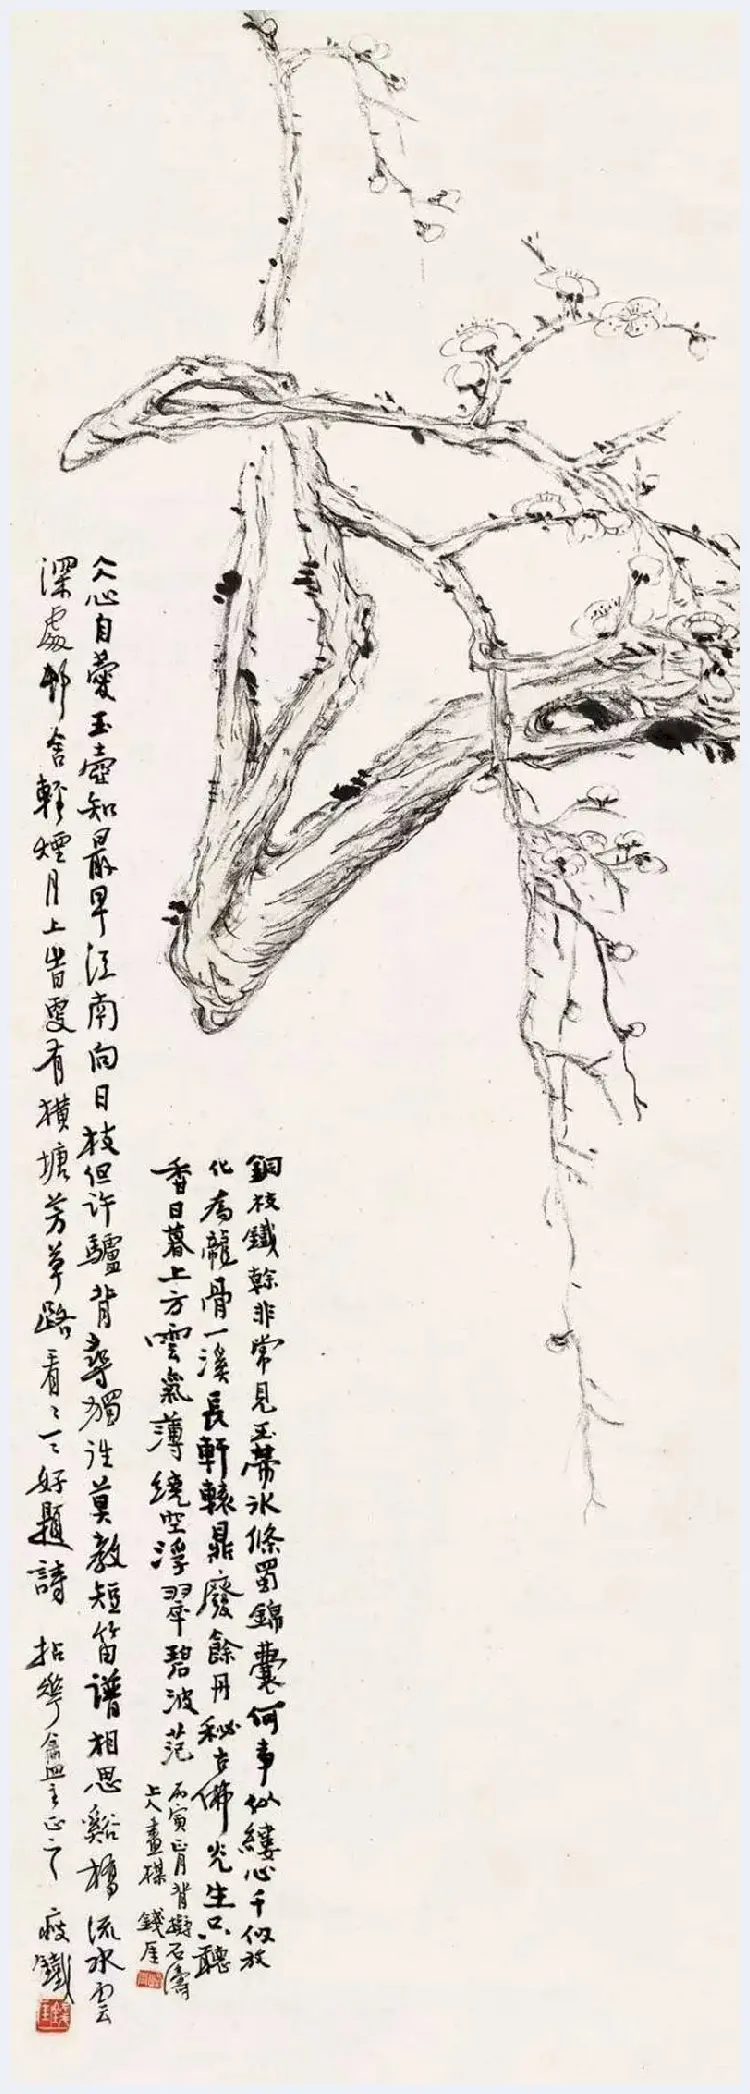 銅枝鐵榦非常見玉蒂氷條蜀錦囊何事似縷心千似放
化為龍骨一溪長軒轅鼎廢餘丹秘古佛光生只聽
香日暮上方雲氣薄繞空浮翠碧波茫
丙寅正月背擬石濤
上人畫 錢厓
仌心自愛玉壺知最早江南向日枝但許驢背尋獨往莫教短笛譜相思谿橋流水雲
深處邨舍輕煙月上時更有橫塘芳草路看〻一〻好題詩 拈華盦主正之 瘦鐵